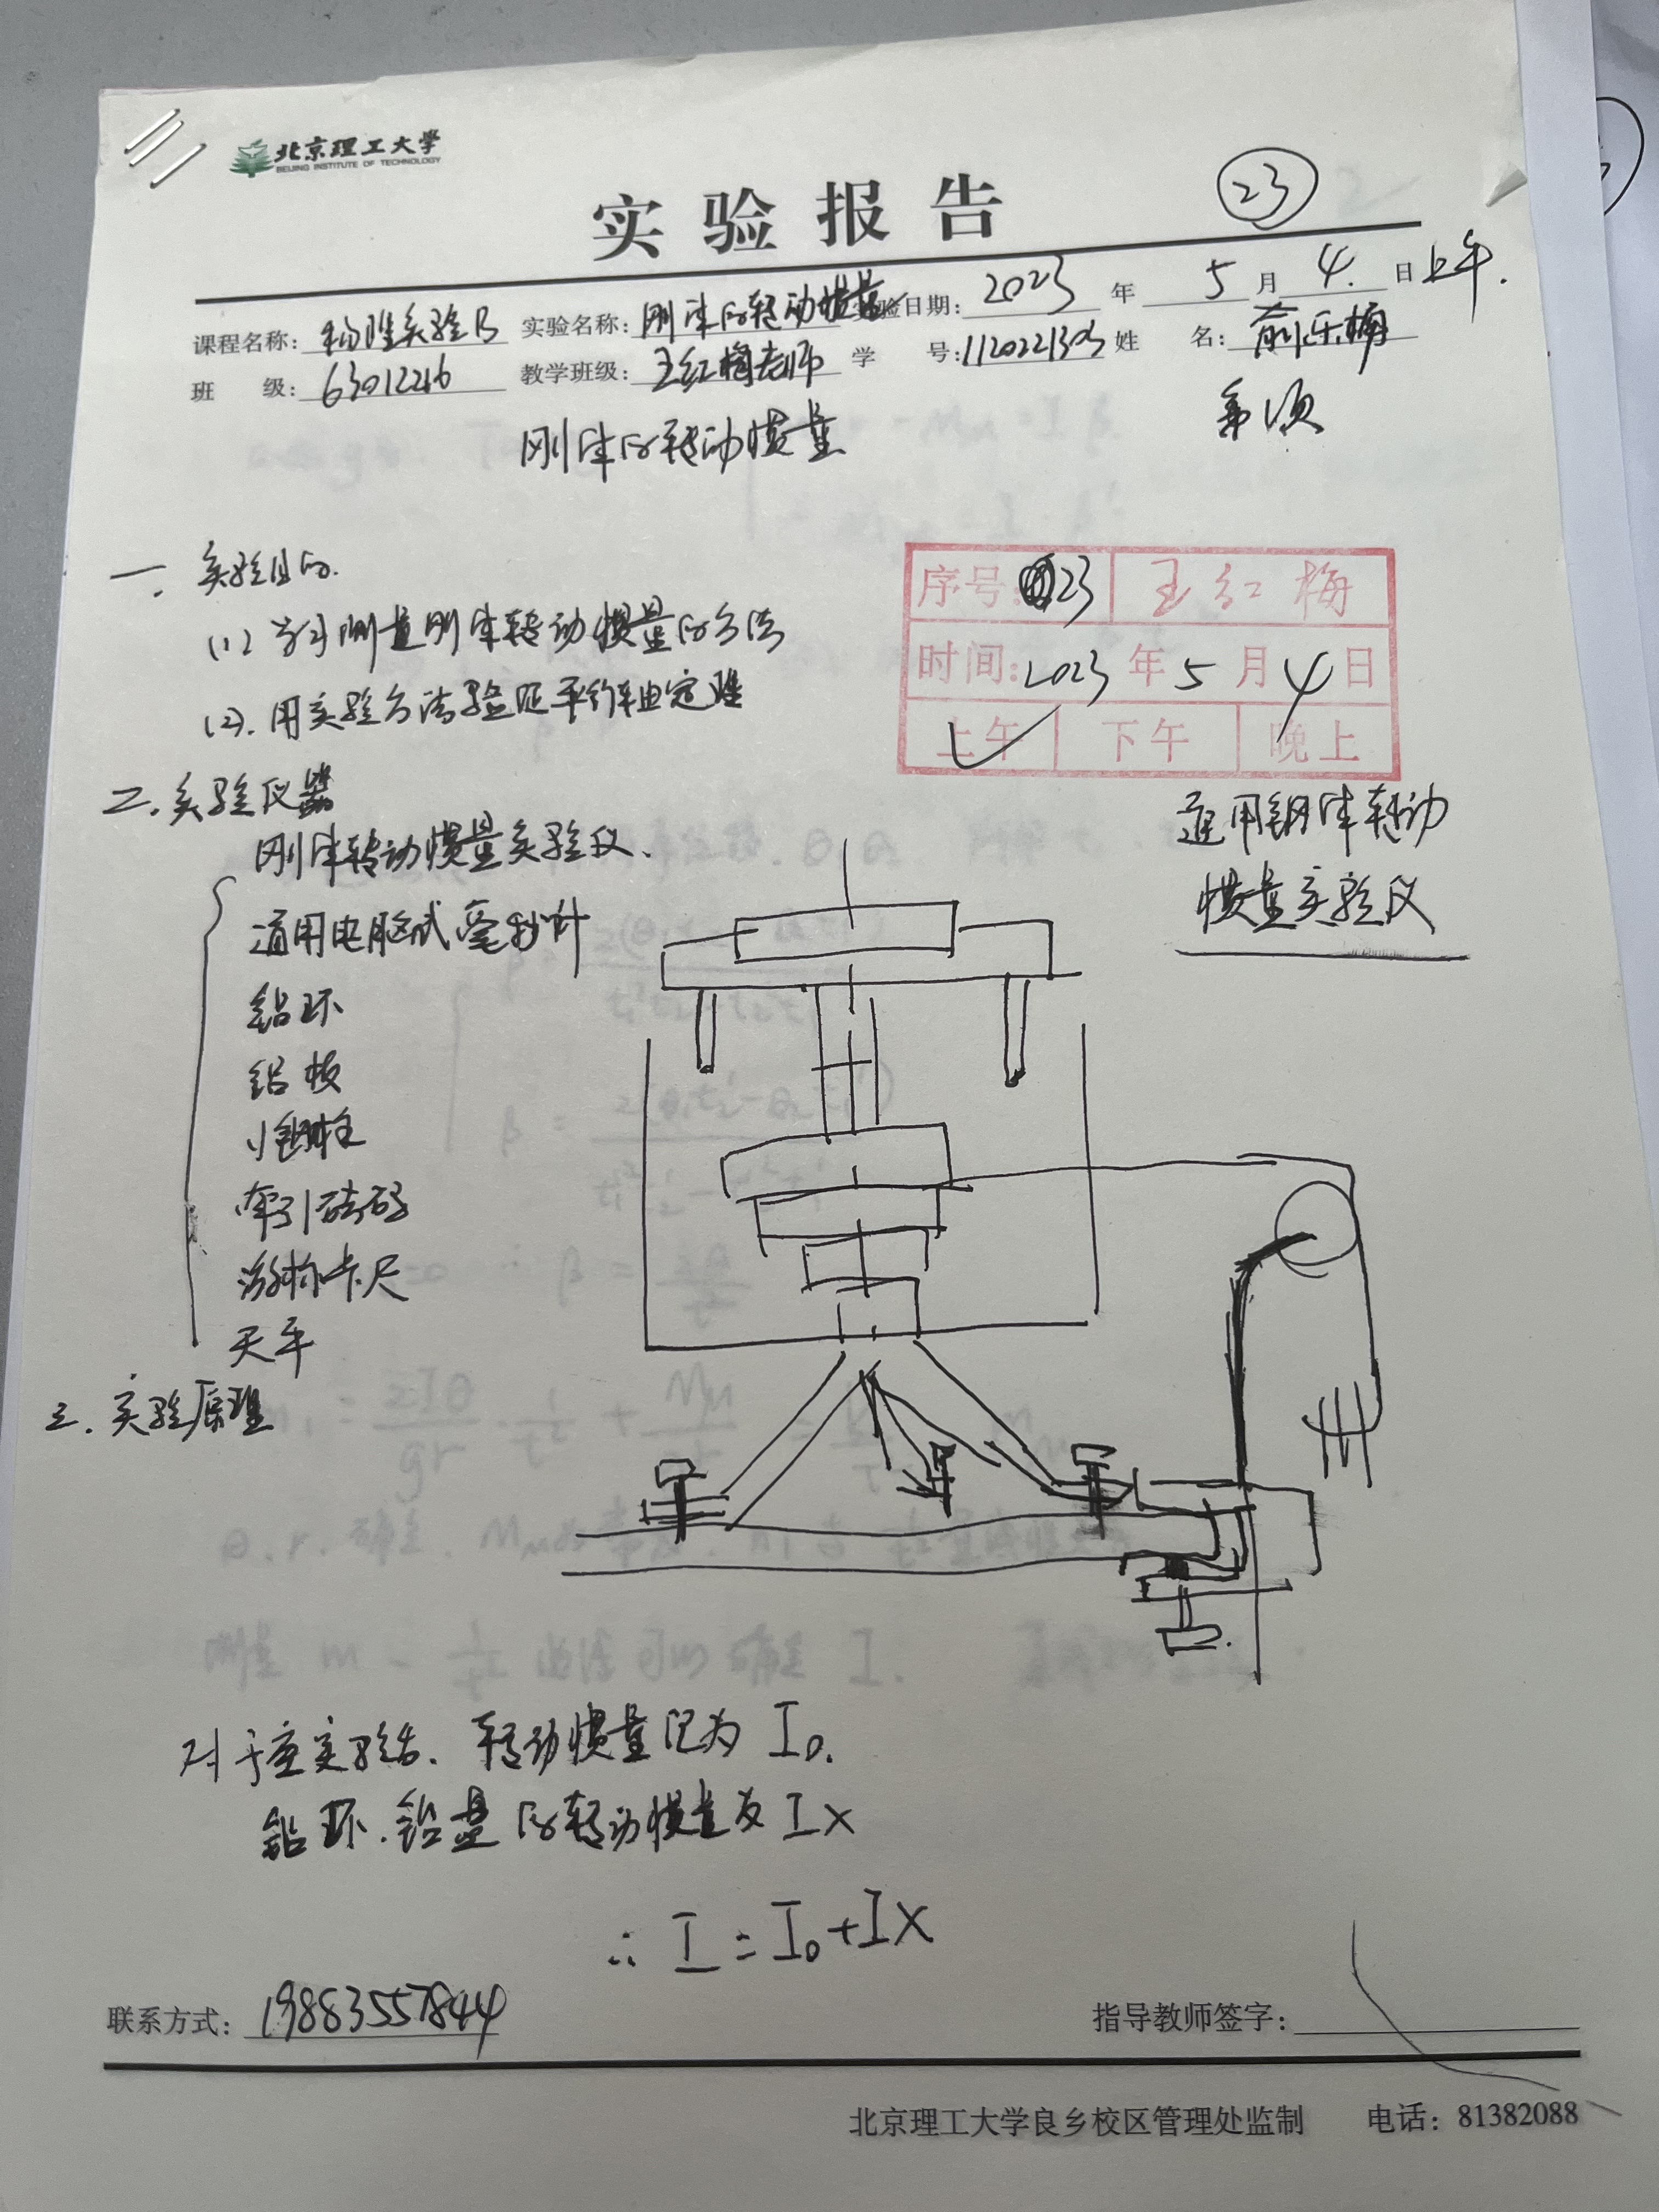 北京理工大学
BEIJING INSTITUTE OF TECHNOLOGY
实验报告
23
课程名称: 物理实验B 实验名称: 刚体的转动惯量 实验日期: 2023 年 5 月 4 日上午.
班 级: 63012216 教学班级: 王红梅老师 学 号: 1120221303 姓 名: 俞乐梅
刚体的转动惯量
第1页
一. 实验目的.
(1) 学习测量刚体转动惯量的方法
(2). 用实验方法验证平行轴定理
序号: 23 王红梅
时间: 2023 年 5 月 4 日
上午 下午 晚上
二. 实验仪器
刚体转动惯量实验仪.
通用电脑式毫秒计
铝环
铝板
小钢柱
牵引砝码
游标卡尺
天平
通用钢体转动
惯量实验仪
三. 实验原理
对于空实验台. 转动惯量记为 I₀.
铝环. 铝盘的转动惯量为 Ix
∴ I = I₀+Ix
联系方式: 19883557844
指导教师签字:
北京理工大学良乡校区管理处监制 电话: 81382088